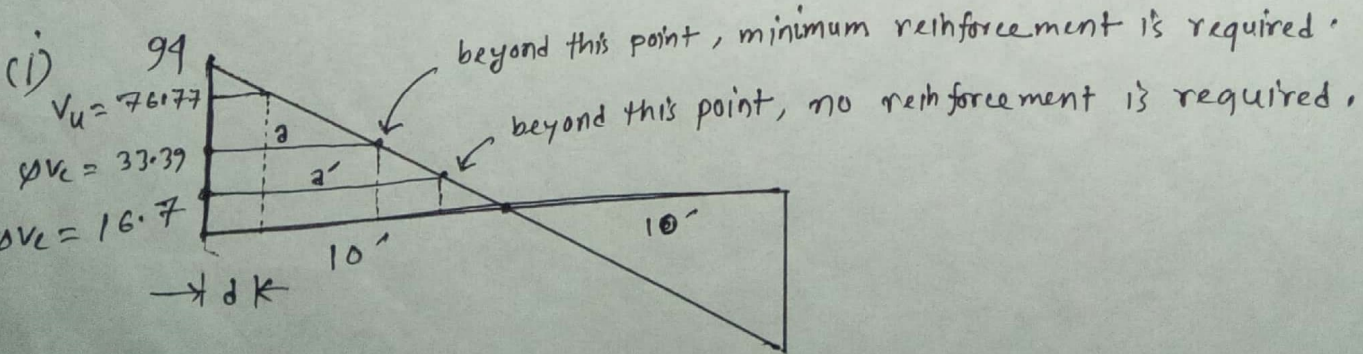 (i) 94 beyond this point, minimum reinforcement is required.
Vu = 76.77 beyond this point, no reinforcement is required.
a
φVc = 33.39
a'
φVc = 16.7
10' 10'
d